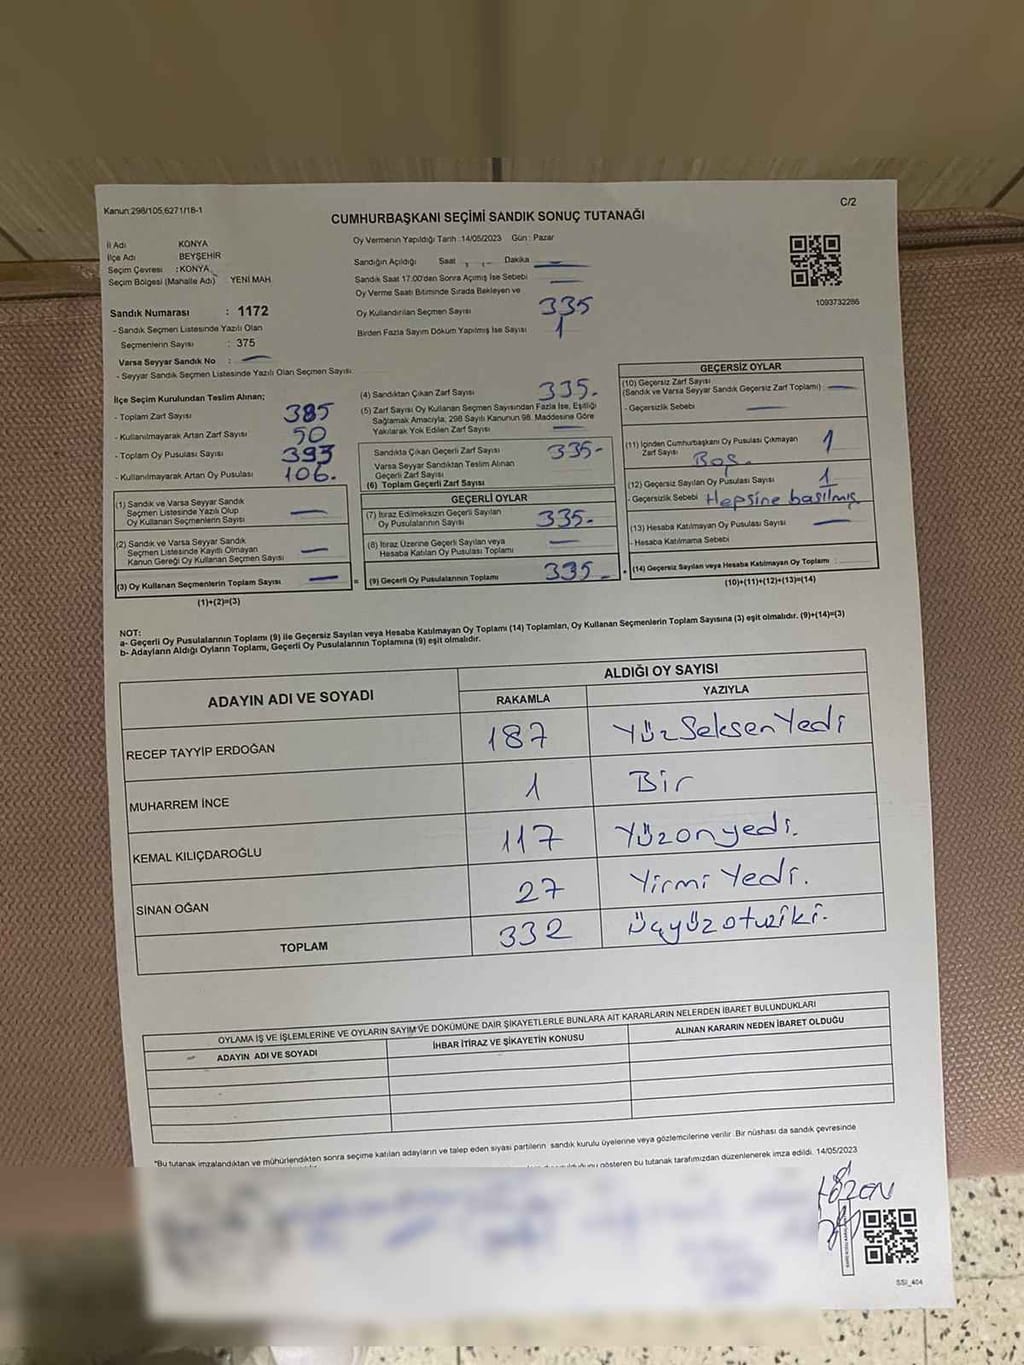 Kanun:298/105,6271/18-1
C/2
CUMHURBAŞKANI SEÇİMİ SANDIK SONUÇ TUTANAĞI
İl Adı KONYA
İlçe Adı BEYŞEHİR
Seçim Çevresi : KONYA
Seçim Bölgesi (Mahalle Adı) YENİ MAH
Sandık Numarası : 1172
- Sandık Seçmen Listesinde Yazılı Olan
Seçmenlerin Sayısı : 375
Varsa Seyyar Sandık No :
- Seyyar Sandık Seçmen Listesinde Yazılı Olan Seçmen Sayısı:
Oy Vermenin Yapıldığı Tarih :14/05/2023 Gün : Pazar
Sandığın Açıldığı Saat Dakika
Sandık Saat 17.00'den Sonra Açımış İse Sebebi
Oy Verme Saati Bitiminde Sırada Bekleyen ve
Oy Kullandırılan Seçmen Sayısı 335
Birden Fazla Sayım Döküm Yapılmış İse Sayısı 1
1093732286
İlçe Seçim Kurulundan Teslim Alınan;
- Toplam Zarf Sayısı 385
- Kullanılmayarak Artan Zarf Sayısı 50
- Toplam Oy Pusulası Sayısı 393
- Kullanılmayarak Artan Oy Pusulası 106.
(1) Sandık ve Varsa Seyyar Sandık
Seçmen Listesinde Yazılı Olup
Oy Kullanan Seçmenlerin Sayısı
(2) Sandık ve Varsa Seyyar Sandık
Seçmen Listesinde Kayıtlı Olmayan
Kanun Gereği Oy Kullanan Seçmen Sayısı
(3) Oy Kullanan Seçmenlerin Toplam Sayısı =
(1)+(2)=(3)
(4) Sandıktan Çıkan Zarf Sayısı 335.
(5) Zarf Sayısı Oy Kullanan Seçmen Sayısından Fazla İse, Eşitliği
Sağlamak Amacıyla; 298 Sayılı Kanunun 98. Maddesine Göre
Yakılarak Yok Edilen Zarf Sayısı
Sandıkta Çıkan Geçerli Zarf Sayısı 335-
Varsa Seyyar Sandıktan Teslim Alınan
Geçerli Zarf Sayısı
(6) Toplam Geçerli Zarf Sayısı
GEÇERLİ OYLAR
(7) İtiraz Edilmeksizin Geçerli Sayılan
Oy Pusulalarının Sayısı 335-
(8) İtiraz Üzerine Geçerli Sayılan veya
Hesaba Katılan Oy Pusulası Toplamı
(9) Geçerli Oy Pusulalarının Toplamı 335-
GEÇERSİZ OYLAR
(10) Geçersiz Zarf Sayısı
(Sandık ve Varsa Seyyar Sandık Geçersiz Zarf Toplamı)
- Geçersizlik Sebebi
(11) İçinden Cumhurbaşkanı Oy Pusulası Çıkmayan
Zarf Sayısı 1
Boş.
(12) Geçersiz Sayılan Oy Pusulası Sayısı 1
- Geçersizlik Sebebi Hepsine basılmış
(13) Hesaba Katılmayan Oy Pusulası Sayısı
- Hesaba Katılmama Sebebi
(14) Geçersiz Sayılan veya Hesaba Katılmayan Oy Toplamı :
(10)+(11)+(12)+(13)=(14)
NOT:
a- Geçerli Oy Pusulalarının Toplamı (9) ile Geçersiz Sayılan veya Hesaba Katılmayan Oy Toplamı (14) Toplamları, Oy Kullanan Seçmenlerin Toplam Sayısına (3) eşit olmalıdır. (9)+(14)=(3)
b- Adayların Aldığı Oyların Toplamı, Geçerli Oy Pusulalarının Toplamına (9) eşit olmalıdır.
ADAYIN ADI VE SOYADI ALDIĞI OY SAYISI
RAKAMLA YAZIYLA
RECEP TAYYİP ERDOĞAN 187 YüzSeksenYedi
MUHARREM İNCE 1 Bir
KEMAL KILIÇDAROĞLU 117 Yüzonyedi.
SİNAN OĞAN 27 Yirmi Yedi.
TOPLAM 332 Üçyüzotuziki.
OYLAMA İŞ VE İŞLEMLERİNE VE OYLARIN SAYIM VE DÖKÜMÜNE DAİR ŞİKAYETLERLE BUNLARA AİT KARARLARIN NELERDEN İBARET BULUNDUKLARI
ADAYIN ADI VE SOYADI İHBAR İTİRAZ VE ŞİKAYETİN KONUSU ALINAN KARARIN NEDEN İBARET OLDUĞU
"Bu tutanak imzalandıktan ve mühürlendikten sonra seçime katılan adayların ve talep eden siyasi partilerin sandık kurulu üyelerine veya gözlemcilerine verilir. Bir nüshası da sandık çevresinde
gösteren bu tutanak tarafımızdan düzenlenerek imza edildi. 14/05/2023
SSI_404